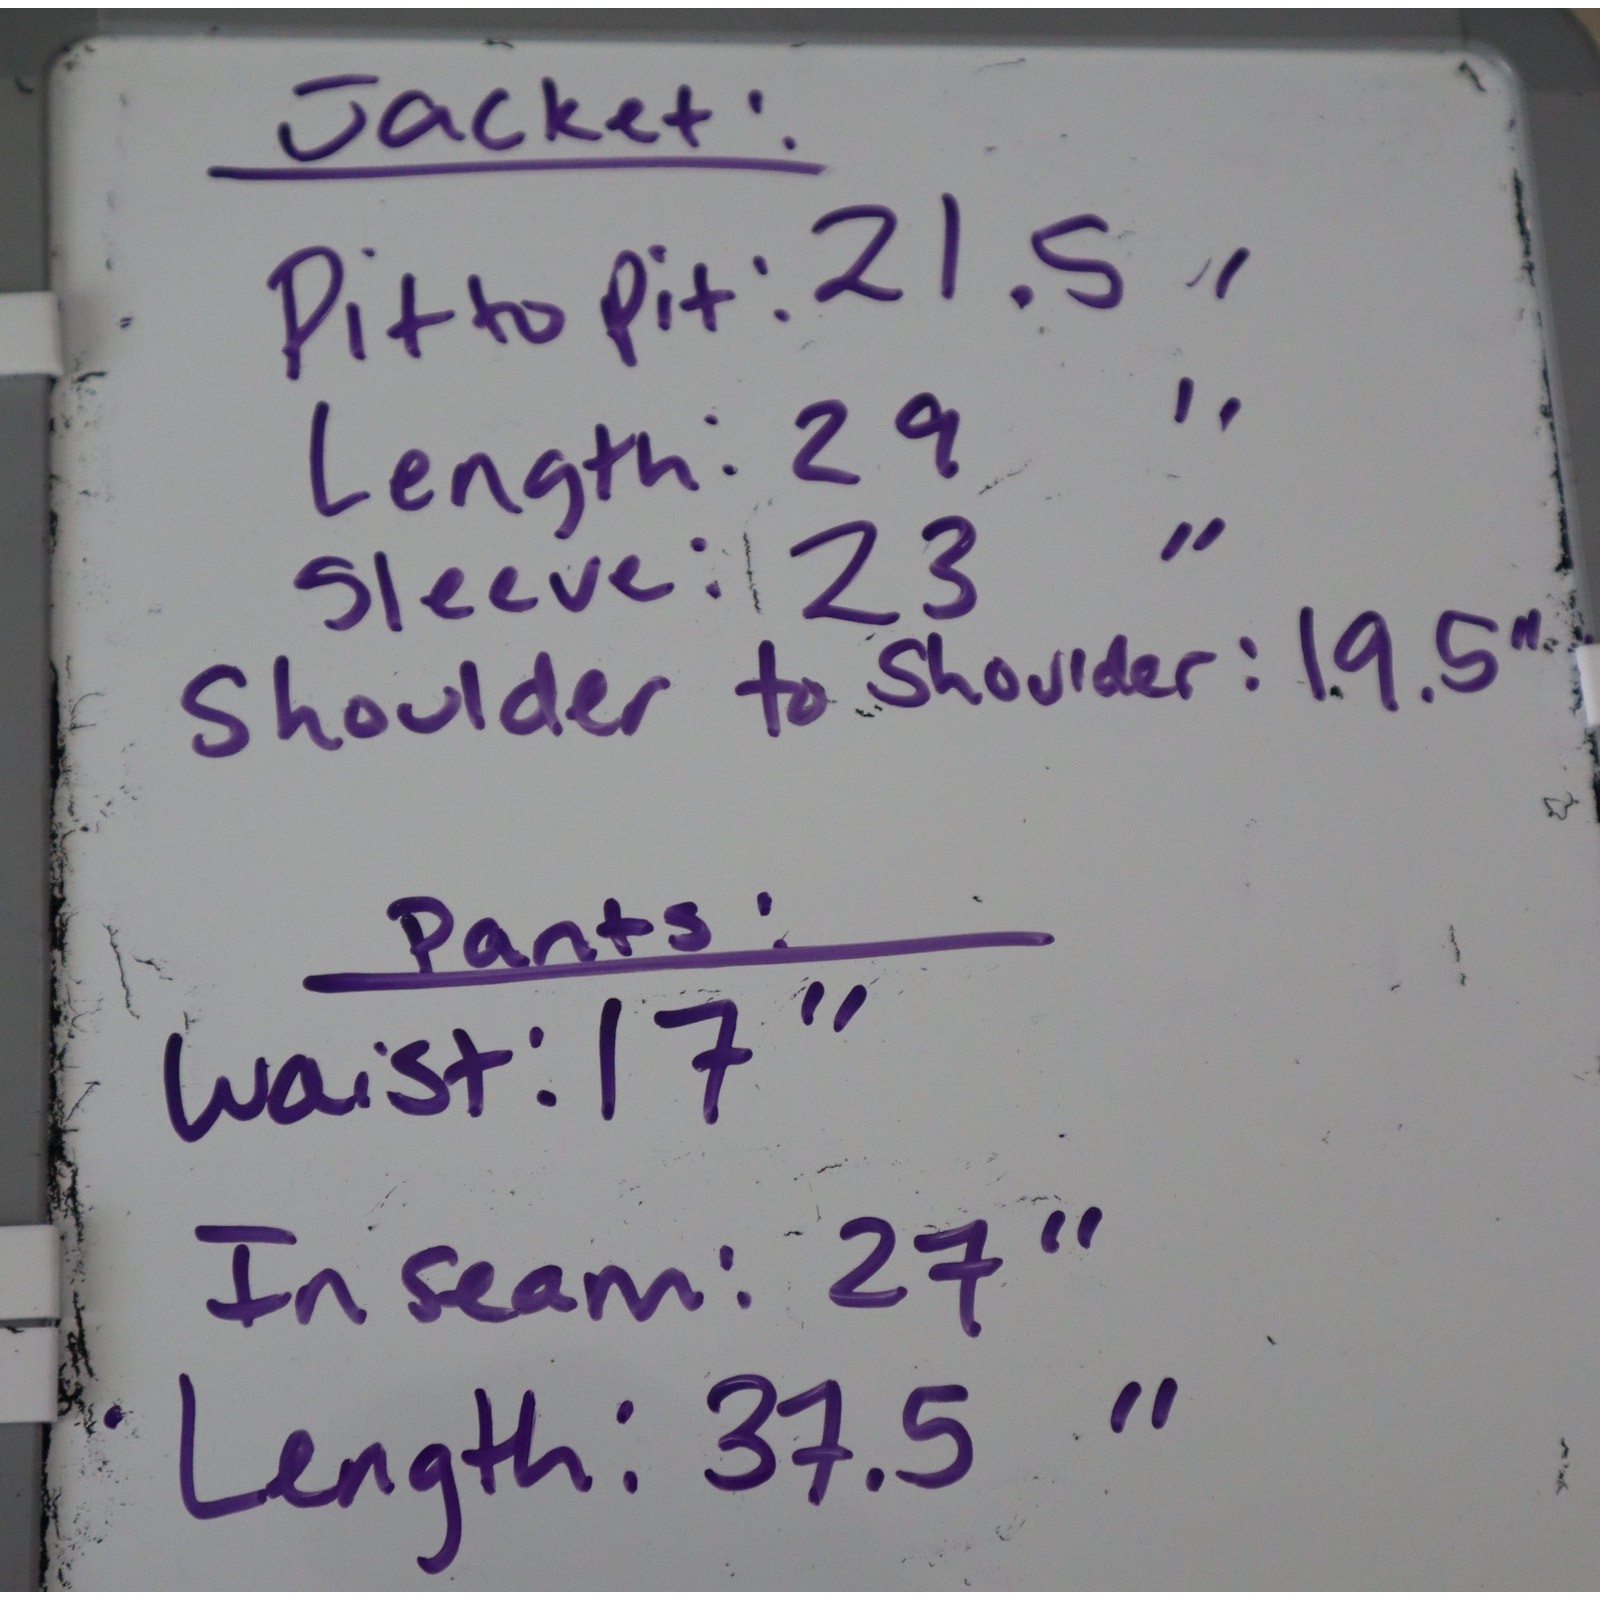 Jacket:
Pit to pit: 21.5 "
Length: 29 "
Sleeve: 23 "
Shoulder to Shoulder: 19.5"
Pants:
Waist: 17"
Inseam: 27"
Length: 37.5 "